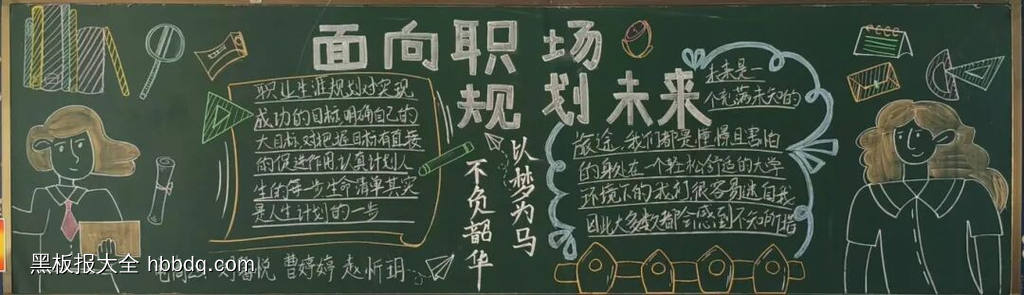 面向职场
规划未来
职业生涯规划对实现
成功的目标明确自己的
大目标对把返目标有直接
的促进作用认真计划人
生的每一步生命清单其实
是人生计划的一步
以梦为马
不负韶华
未来是一
个充满未知的
旅途我们都是懵懂且害怕
的身处在一个轻松舒适的大学
环境下的我们很容易迷自我
因此大多数都会感到不知所措
悦 曹婷婷 赵忻玥
黑板报大全 hbbdq.com